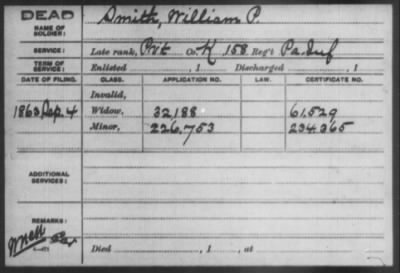 DEAD
NAME OF SOLDIER: Smith, William P.
SERVICE: Late rank, Pvt Co. K, 158 Reg't Pa. Inf
TERM OF SERVICE: Enlisted , 1 Discharged , 1
DATE OF FILING. CLASS. APPLICATION NO. LAW. CERTIFICATE NO.
Invalid,
1863 Sep. 4 Widow, 32188 61,529
Minor, 226,753 234365
ADDITIONAL SERVICES:
REMARKS:
Died , 1 , at